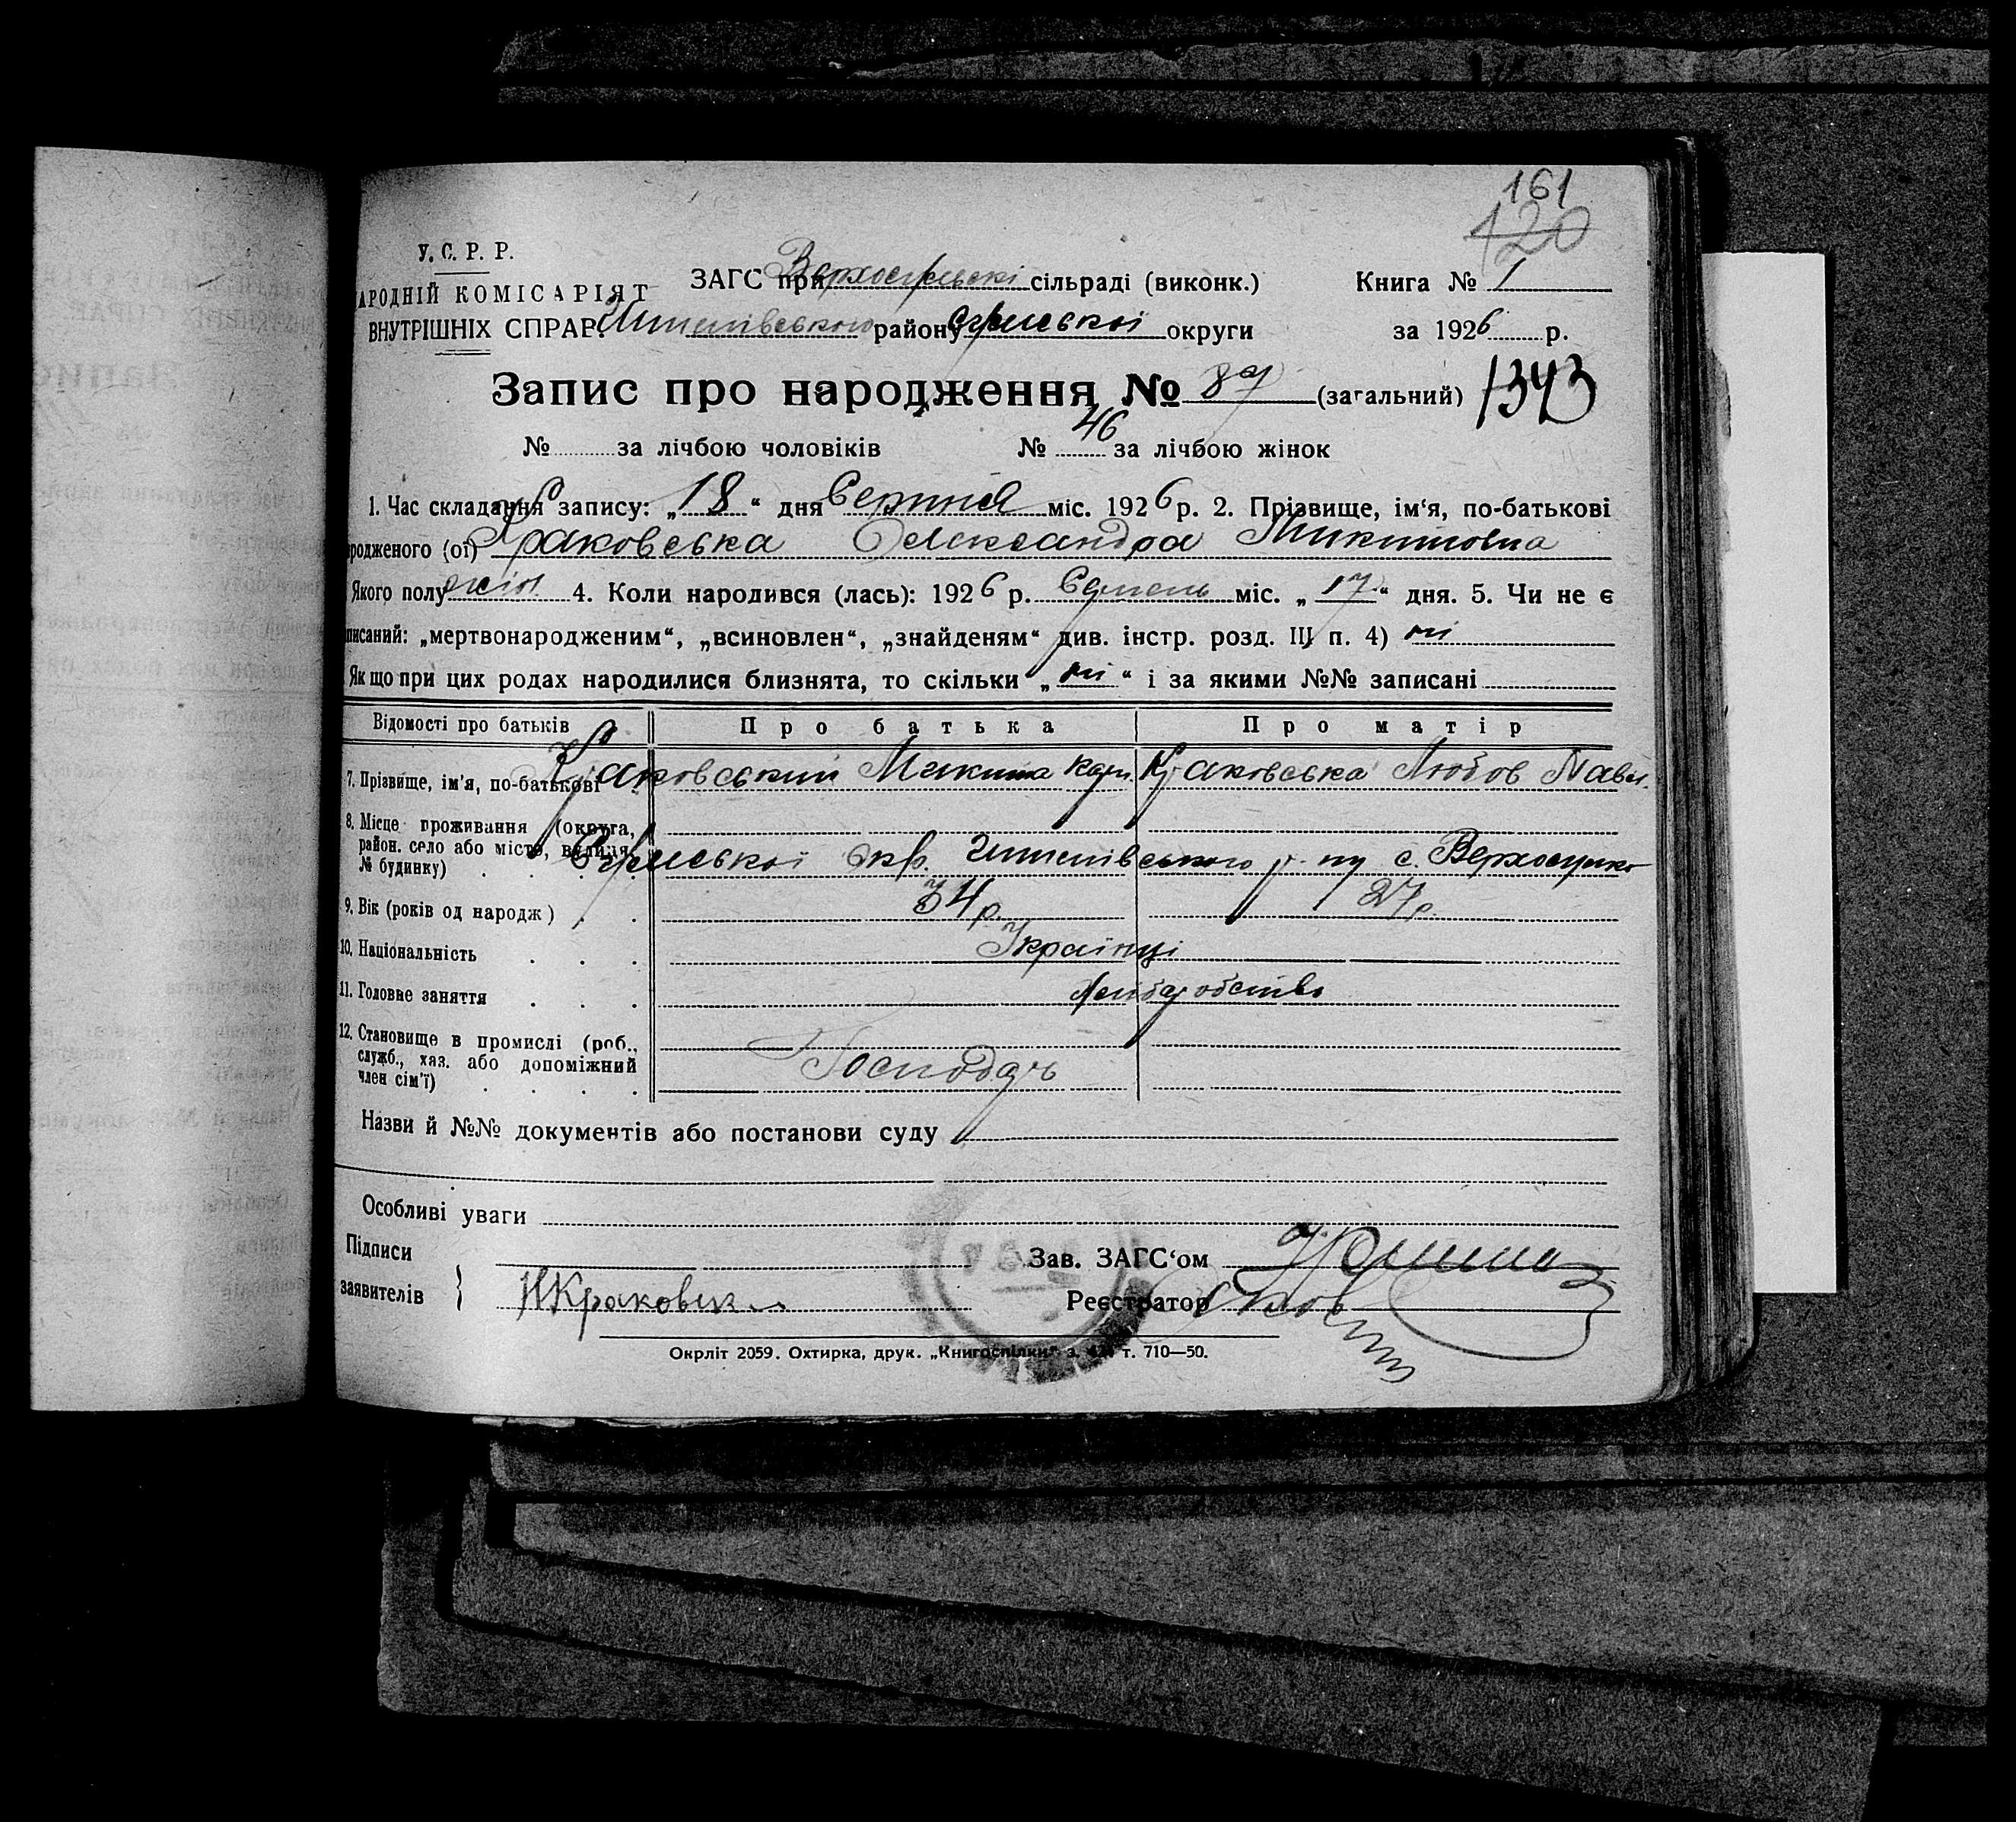 161
120
У. С. Р. Р.
АРОДНІЙ КОМІСАРІЯТ
ВНУТРІШНІХ СПРАВ.
ЗАГС при Верхосульскі сільраді (виконк.)
Книга № 1
району Сумської округи
за 1926 р.
Запис про народження № 89 (загальний) 1343
№ за лічбою чоловіків № 46 за лічбою жінок
1. Час складання запису: „ 18 “ дня Серпня міс. 1926 р. 2. Прізвище, ім‘я, по-батькові
родженого (ої) Краковська Олександра Микитовна
Якого полу жін. 4. Коли народився (лась): 1926 р. Серпень міс. „ 17 “ дня. 5. Чи не є
писаний: „мертвонародженим“, „всиновлен“, „знайденям“ див. інстр. розд. III п. 4) ні
Якщо при цих родах народилися близнята, то скільки „ ні “ і за якими №№ записані
Відомості про батьків Про батька Про матір
7. Прізвище, ім‘я, по-батькові Краковський Микита Карп. Краковська Любов Павл.
8. Місце проживання (округа,
район. село або місто, вулиця,
№ будинку)
Сумської окр. Штепівського р-ну с. Верхосулка
9. Вік (років од народж) 34 р. 27 р.
10. Національність Українці
11. Головне заняття Хліборобство
12. Становище в промислі (роб.,
служб., хаз. або допоміжний
член сім‘ї)
Господар
Назви й №№ документів або постанови суду
Особливі уваги
Підписи
заявителів
Зав. ЗАГС‘ом
Реєстратор
Окрліт 2059. Охтирка, друк. „Книгоспілки“ з. т. 710—50.